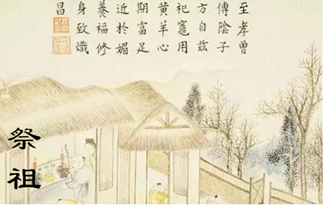 至孝曾
傳陰子
方自茲
祀竈用
黄羊心
期富足
近於媚
養福修
身致熾
昌
祭祖